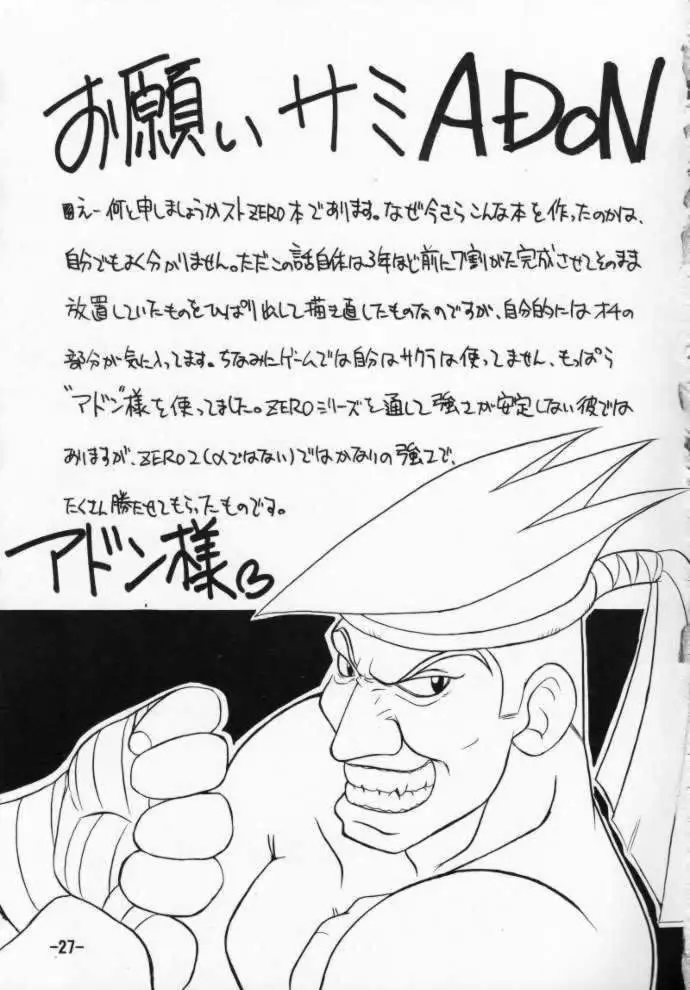 お願いサミADON
え－何と申しましょうかストZERO本であります。なぜ今さらこんな本を作ったのかは、
自分でもよく分かりません。ただこの話自体は3年ほど前に7割がた完成させてそのまま
放置していたものをひっぱり出して描き直したものなのですが、自分的にはオチの
部分が気に入ってます。ちなみにゲームでは自分はサクラは使ってません、もっぱら
"アドン"様を使ってました。ZEROシリーズを通して強さが安定しない彼では
ありますが、ZERO2(αではない)ではかなりの強さで、
たくさん勝たせてもらったものです。
アドン様
-27-